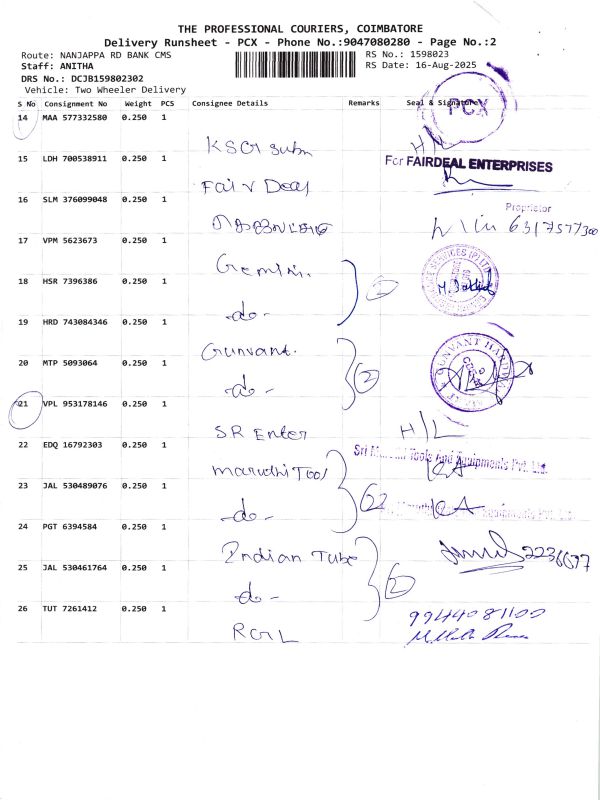 THE PROFESSIONAL COURIERS, COIMBATORE
Delivery Runsheet - PCX - Phone No.:9047080280 - Page No.:2
Route: NANJAPPA RD BANK CMS
RS No.: 1598023
Staff: ANITHA
RS Date: 16-Aug-2025
DRS No.: DCJB159802302
Vehicle: Two Wheeler Delivery
S No Consignment No Weight PCS Consignee Details Remarks Seal & Signature
PCX
14 MAA 577332580 0.250 1
KSCI Subm H/L
15 LDH 700538911 0.250 1
For FAIRDEAL ENTERPRISES
Fair Deal
16 SLM 376099048 0.250 1
Proprietor
6317577300
17 VPM 5623673 0.250 1
Gemini.
18 HSR 7396386 0.250 1
-do- 2
19 HRD 743084346 0.250 1
Gunvant. GUNVANT
20 MTP 5093064 0.250 1
-do- 2
21 VPL 953178146 0.250 1
SR Enter H/L
22 EDQ 16792303 0.250 1
Sri Maruthi Tools And Equipments Pvt. Ltd.
Marudhi Tool
23 JAL 530489076 0.250 1
-do-
24 PGT 6394584 0.250 1
Indian Tube 2236677
25 JAL 530461764 0.250 1
-do- 2
26 TUT 7261412 0.250 1
9944081100
RGL